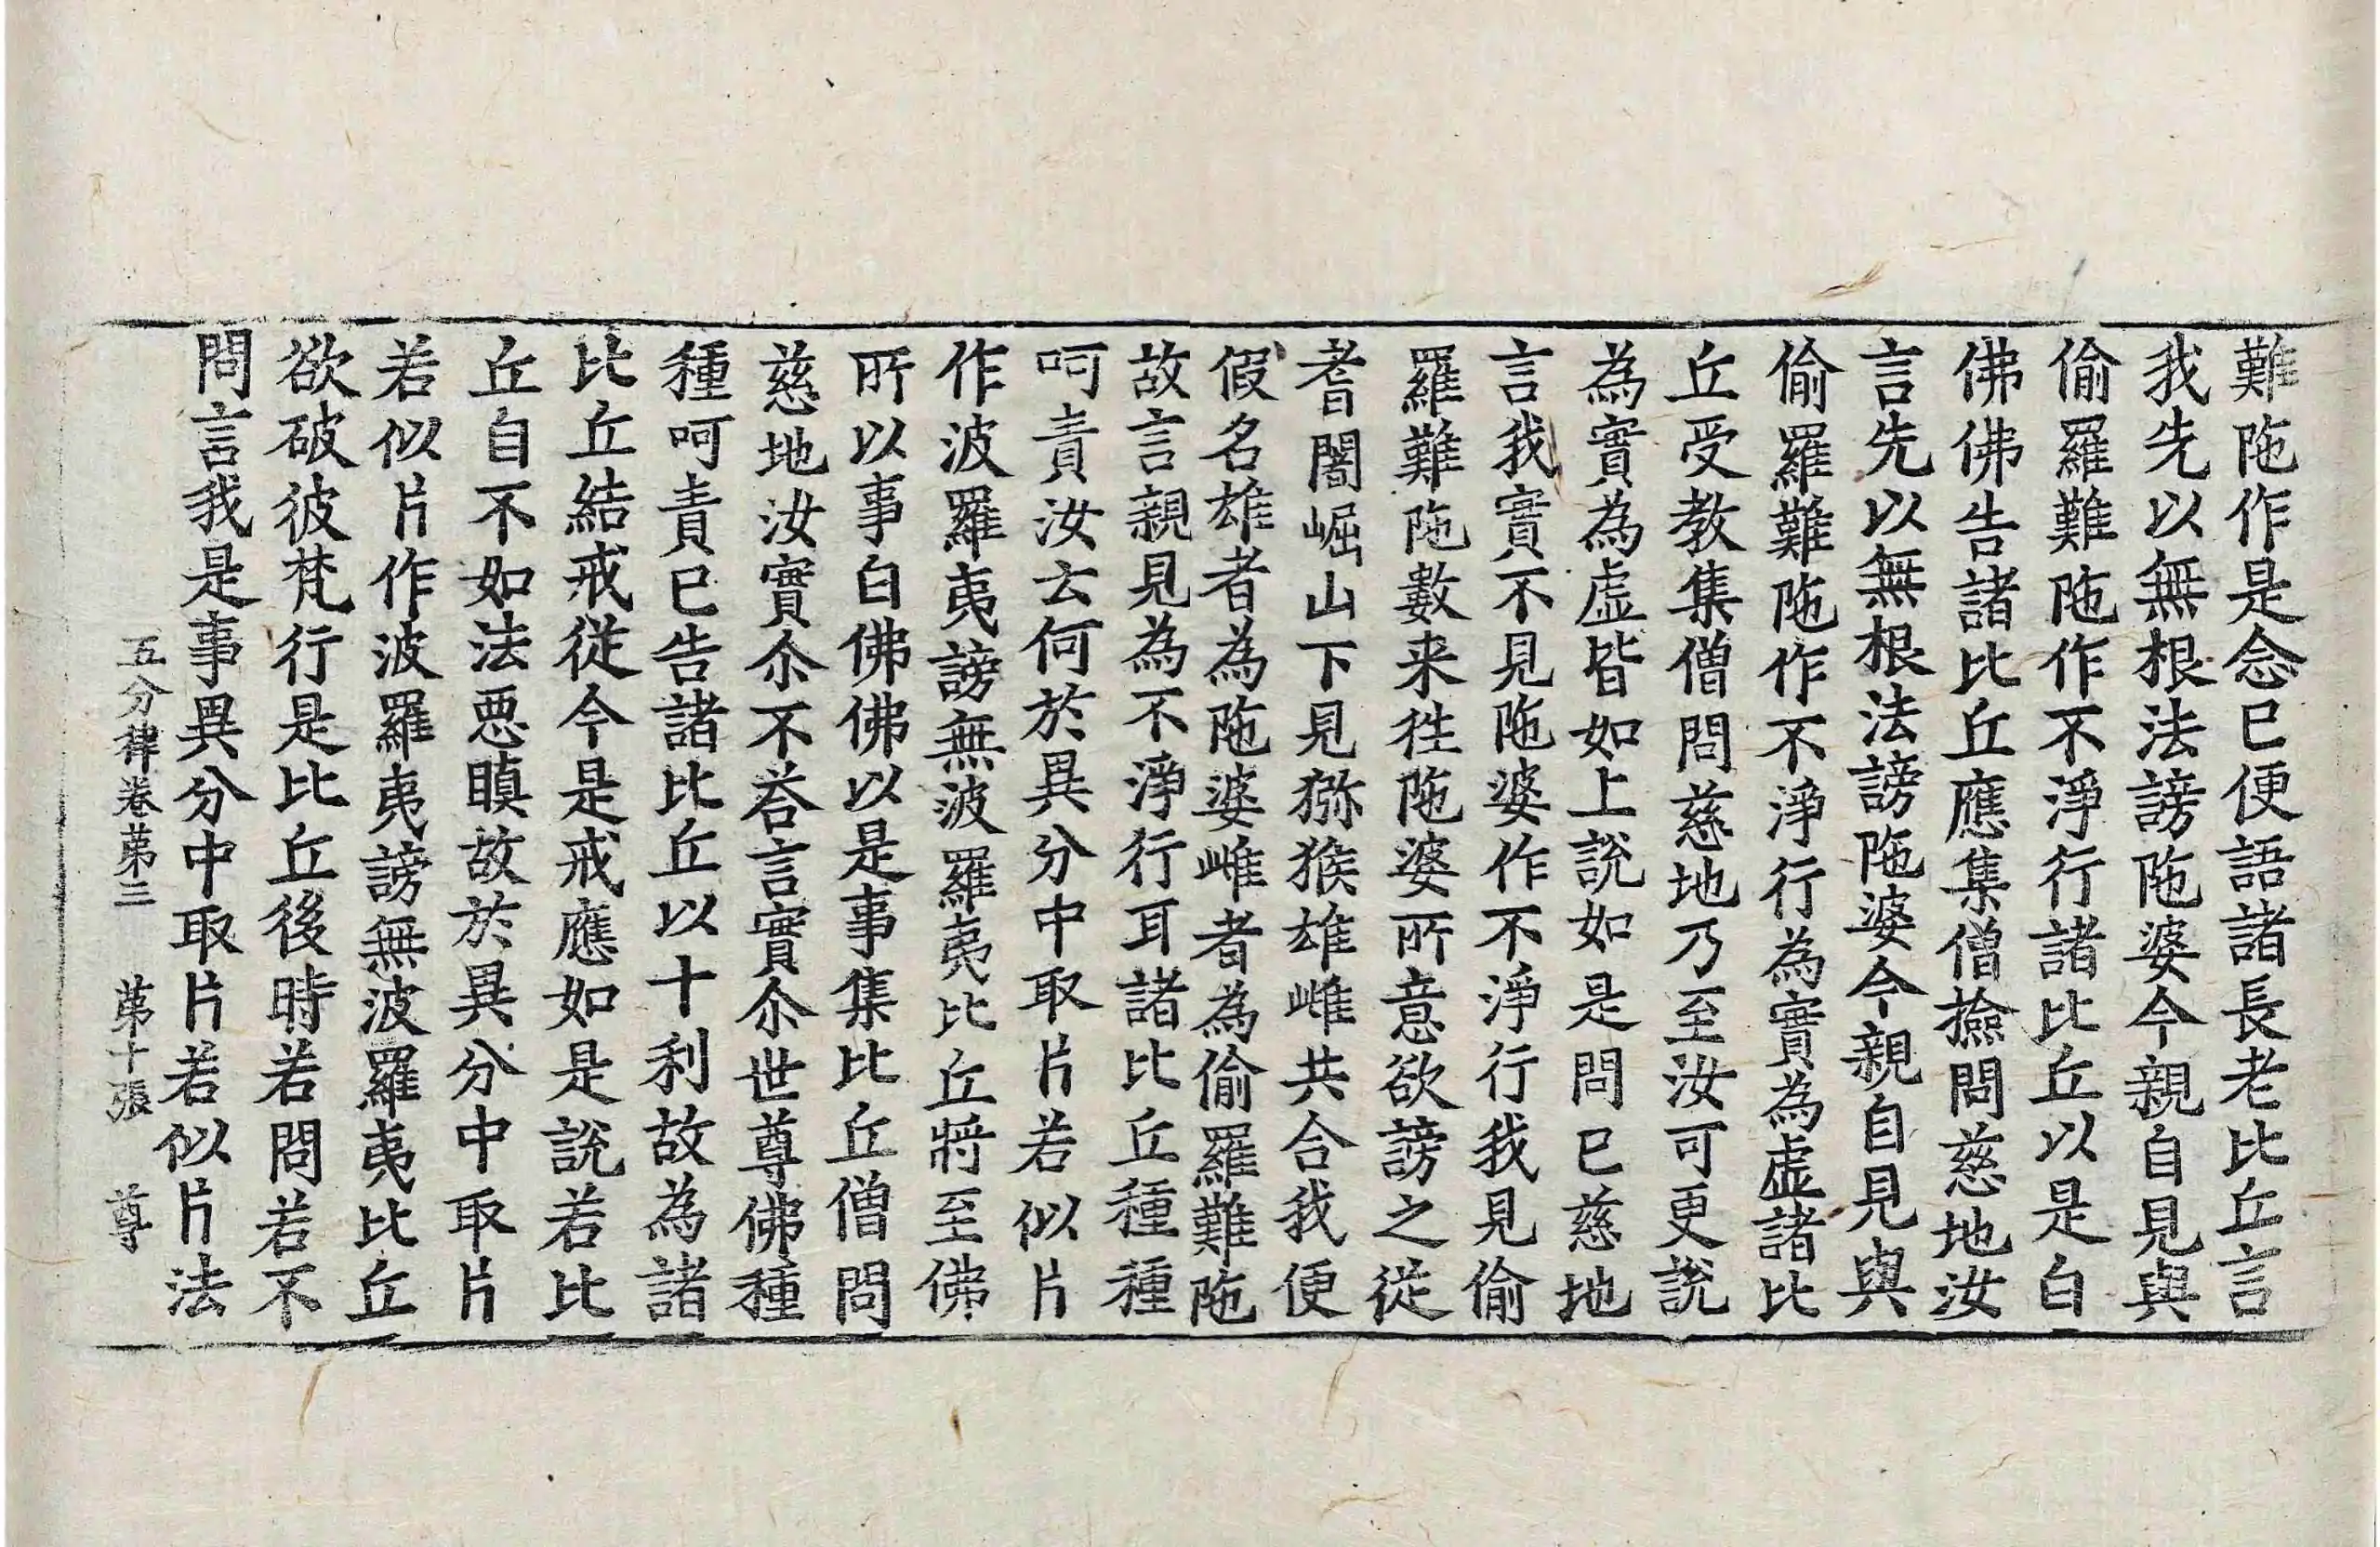 難陁作是念已便語諸長老比丘言
我先以無根法謗陁婆今親自見與
偷羅難陁作不淨行諸比丘以是白
佛佛告諸比丘應集僧撿問慈地汝
言先以無根法謗陁婆今親自見與
偷羅難陁作不淨行為實為虛諸比
丘受教集僧問慈地乃至汝可更說
為實為虛皆如上說如是問已慈地
言我實不見陁婆作不淨行我見偷
羅難陁數来往陁婆所意欲謗之從
耆闍崛山下見猕猴雄雌共合我便
假名雄者為陁婆雌者為偷羅難陁
故言親見為不淨行耳諸比丘種種
呵責汝云何於異分中取片若似片
作波羅夷謗無波羅夷比丘將至佛
所以事白佛佛以是事集比丘僧問
慈地汝實尒不荅言實尒世尊佛種
種呵責已告諸比丘以十利故為諸
比丘結戒從今是戒應如是說若比
丘自不如法惡瞋故於異分中取片
若似片作波羅夷謗無波羅夷比丘
欲破彼梵行是比丘後時若問若不
問言我是事異分中取片若似片法
五分律卷第三 第十張 尊